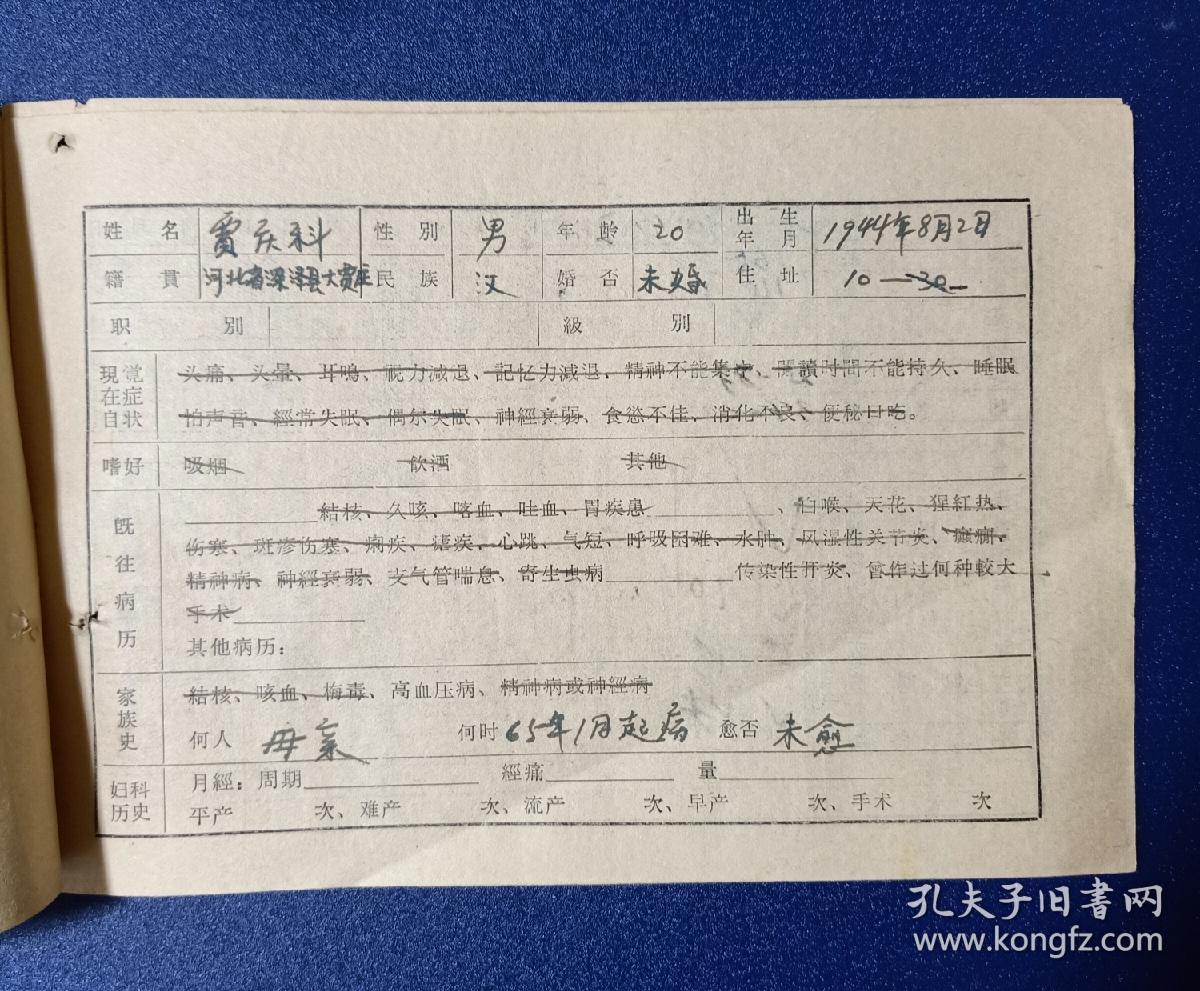 姓 名 贾庆科 性 別 男 年 龄 20 出 生 年 月 1944年8月2日
籍 貫 河北省深泽县大贾庄 民 族 汉 婚 否 未婚 住 址 10—30
职 別 級 別
現在自 觉症状 头痛、头暈、耳鳴、視力減退、記忆力減退、精神不能集中、閱讀时間不能持久、睡眠
怕声音、經常失眠、偶尔失眠、神經衰弱、食慾不佳、消化不良、便秘口吃。
嗜好 吸烟 飲酒 其他
既往病历 結核、久咳、喀血、吐血、胃疾患、白喉、天花、猩紅热、
伤寒、斑疹伤寒、痢疾、瘧疾、心跳、气短、呼吸困难、水肿、风湿性关节炎、癫癎、
精神病、神經衰弱、支气管喘息、寄生虫病 传染性肝炎、曾作过何种較大
手术
其他病历:
家族史 結核、咳血、梅毒、高血压病、精神病或神經病
何人 母亲 何时 65年1月起病 愈否 未愈
妇科历史 月經:周期 經痛 量
平产 次、难产 次、流产 次、早产 次、手术 次
孔夫子旧书网
www.kongfz.com